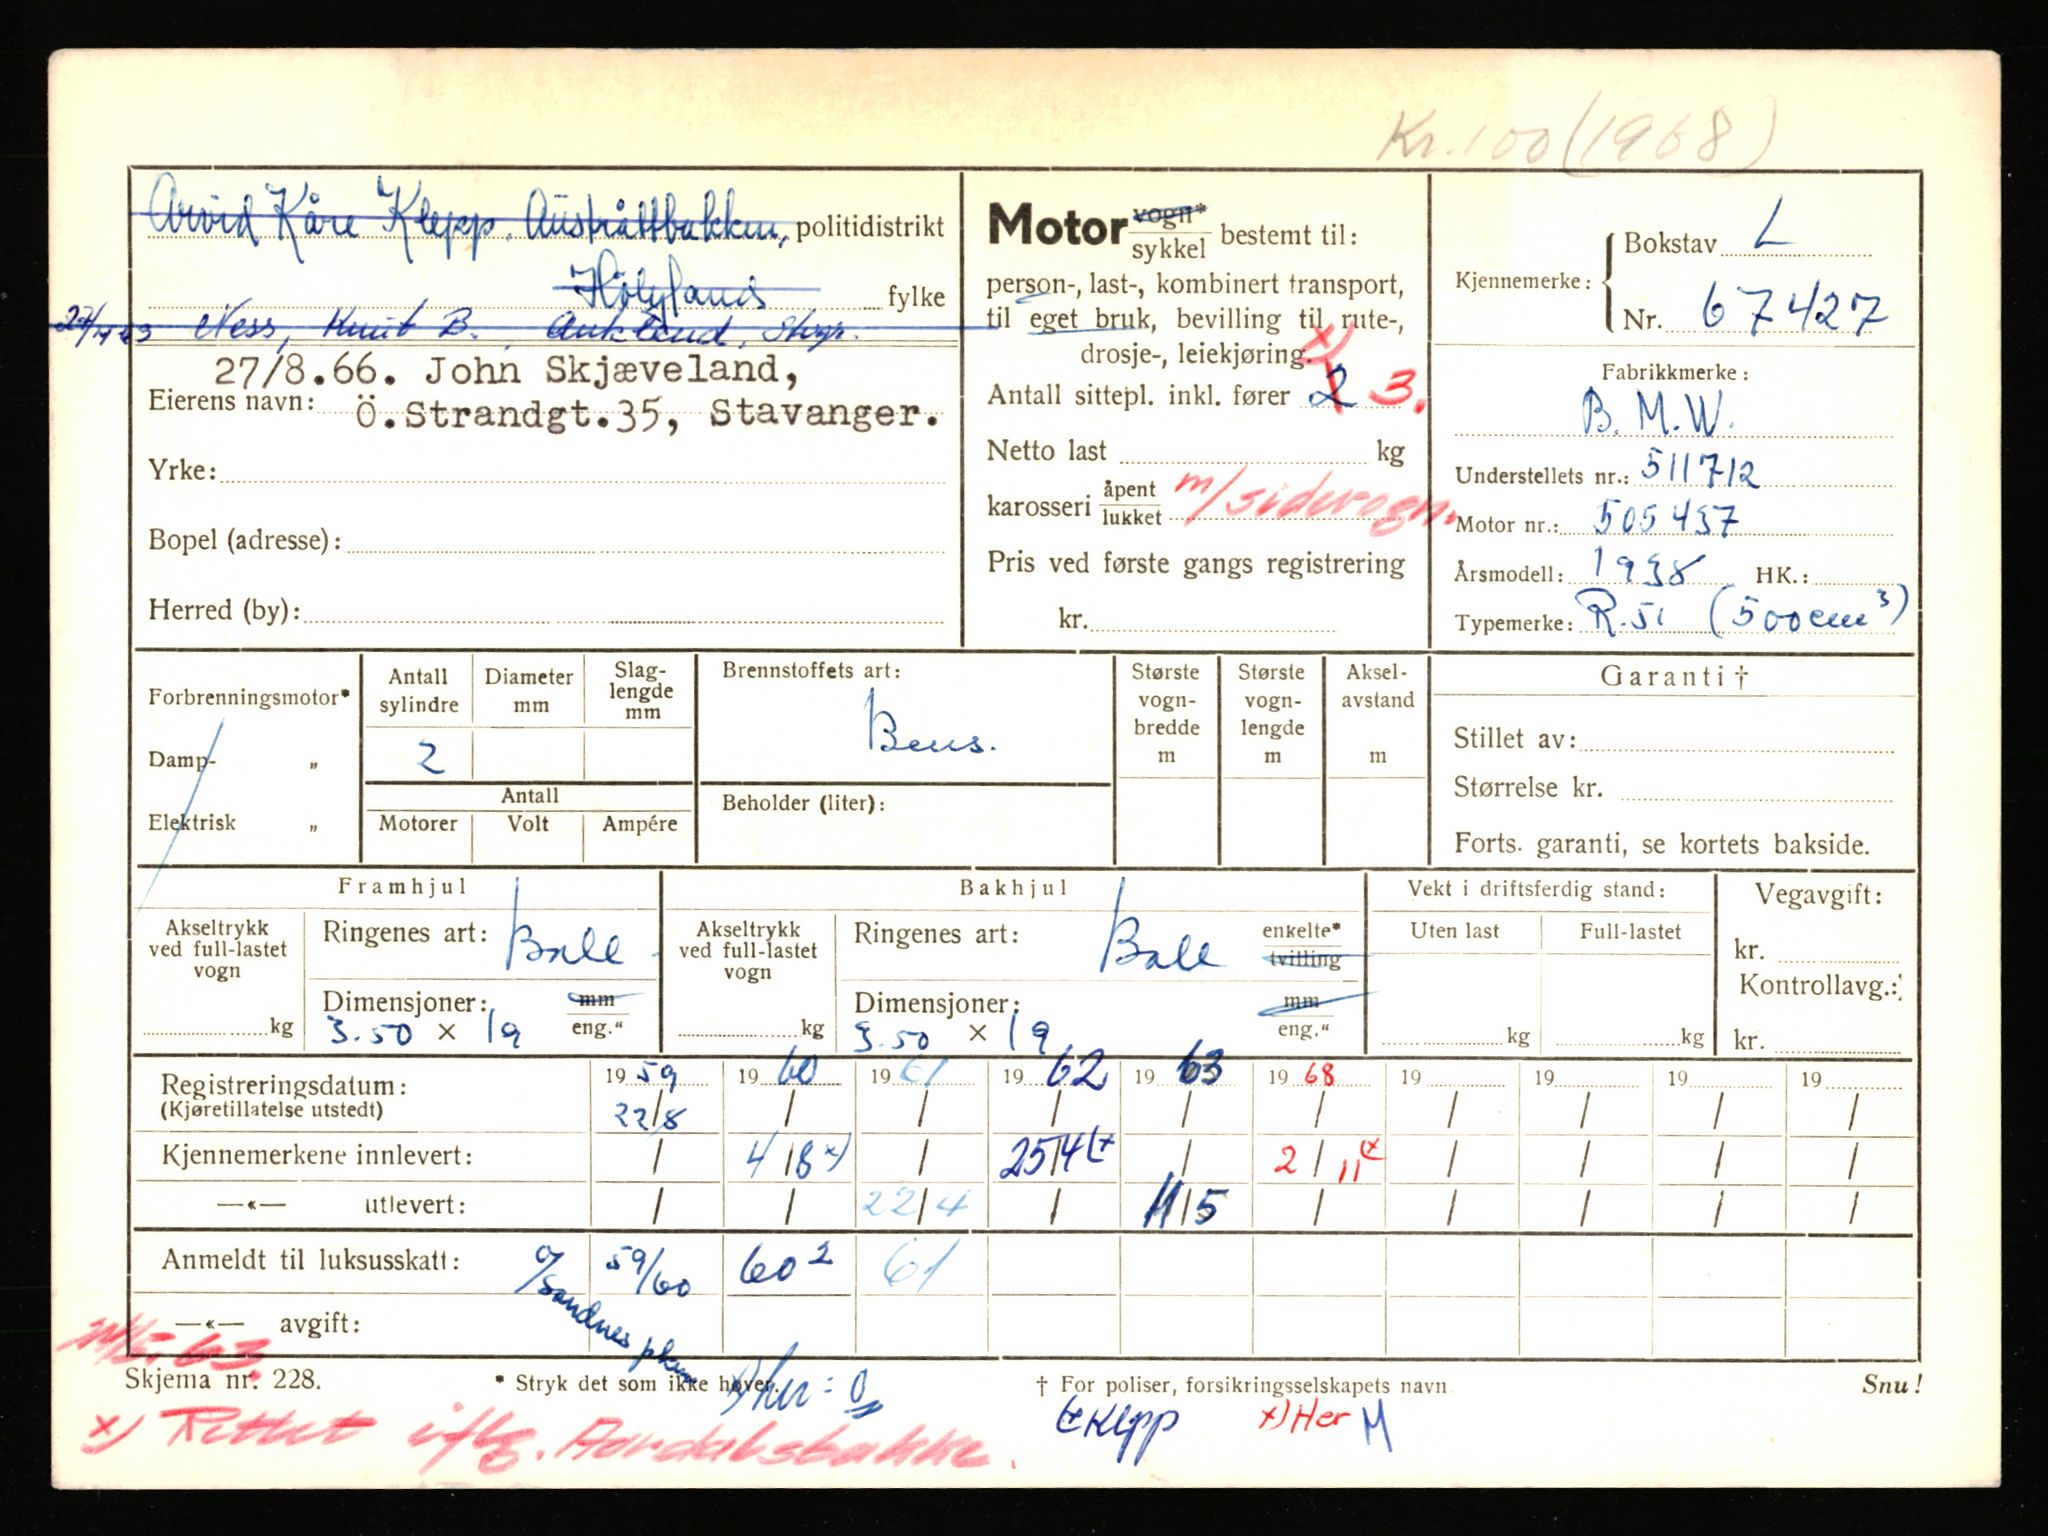 Kr. 100 (1968)
Arvid Kåre Klepp. Austråttbakken, politidistrikt
Høyland fylke
Ness, Knut B., Aukland, Hyp.
27/8.66. John Skjæveland,
Eierens navn: Ö.Strandgt.35, Stavanger.
Yrke:
Bopel (adresse):
Herred (by):
Motor vogn* sykkel bestemt til:
person-, last-, kombinert transport,
til eget bruk, bevilling til rute-,
drosje-, leiekjøring. x)
Antall sittepl. inkl. fører 2 3.
Netto last kg
karosseri åpent lukket m/sidevogn.
Pris ved første gangs registrering
kr.
Kjennemerke: Bokstav L
Nr. 67427
Fabrikkmerke:
B.M.W.
Understellets nr.: 511712
Motor nr.: 505437
Årsmodell: 1938 HK.:
Typemerke: R.51 (500cm³)
Forbrenningsmotor*
Damp- „
Elektrisk „
Antall sylindre Diameter mm Slaglengde mm
2
Antall
Motorer Volt Ampére
Brennstoffets art:
Bens.
Beholder (liter):
Største vogn-bredde m
Største vogn-lengde m
Aksel-avstand m
Garanti †
Stillet av:
Størrelse kr.
Forts. garanti, se kortets bakside.
Framhjul
Akseltrykk ved full-lastet vogn kg
Ringenes art: Ball
Dimensjoner: mm eng."
3.50 × 19
Bakhjul
Akseltrykk ved full-lastet vogn kg
Ringenes art: Ball enkelte* tvilling
Dimensjoner: mm eng."
3.50 × 19
Vekt i driftsferdig stand:
Uten last Full-lastet
kg kg
Vegavgift:
kr.
Kontrollavg.:
kr.
Registreringsdatum: 1959 1960 1961 1962 1963 1968 19 19 19 19
(Kjøretillatelse utstedt) 22/8 / / / / / / / / /
Kjennemerkene innlevert: / 4/8 x) / 25/4 (+ / 2/11 (x / / / /
—«— utlevert: / / 22/4 / 11/5 / / / / /
Anmeldt til luksusskatt: 59/60 60² 61
o/Sandnes pkm
—«— avgift:
Skjema nr. 228. * Stryk det som ikke høver. † For poliser, forsikringsselskapets navn Snu!
x) her:
x) Rettet iflg. Aardalsbakke.
(+ Klepp x) Her M